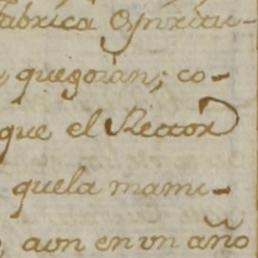 fabrica espiritu-
que goian; co-
que el Rector
que la mami-
aun en un año